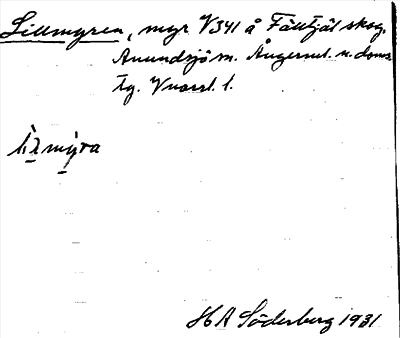 Lillmyren, myr V341 å Fälltjäl skog.
Anundsjö sn. Ångerml. n. doms.
tg. Vnorrl. l.
H A Söderberg 1931